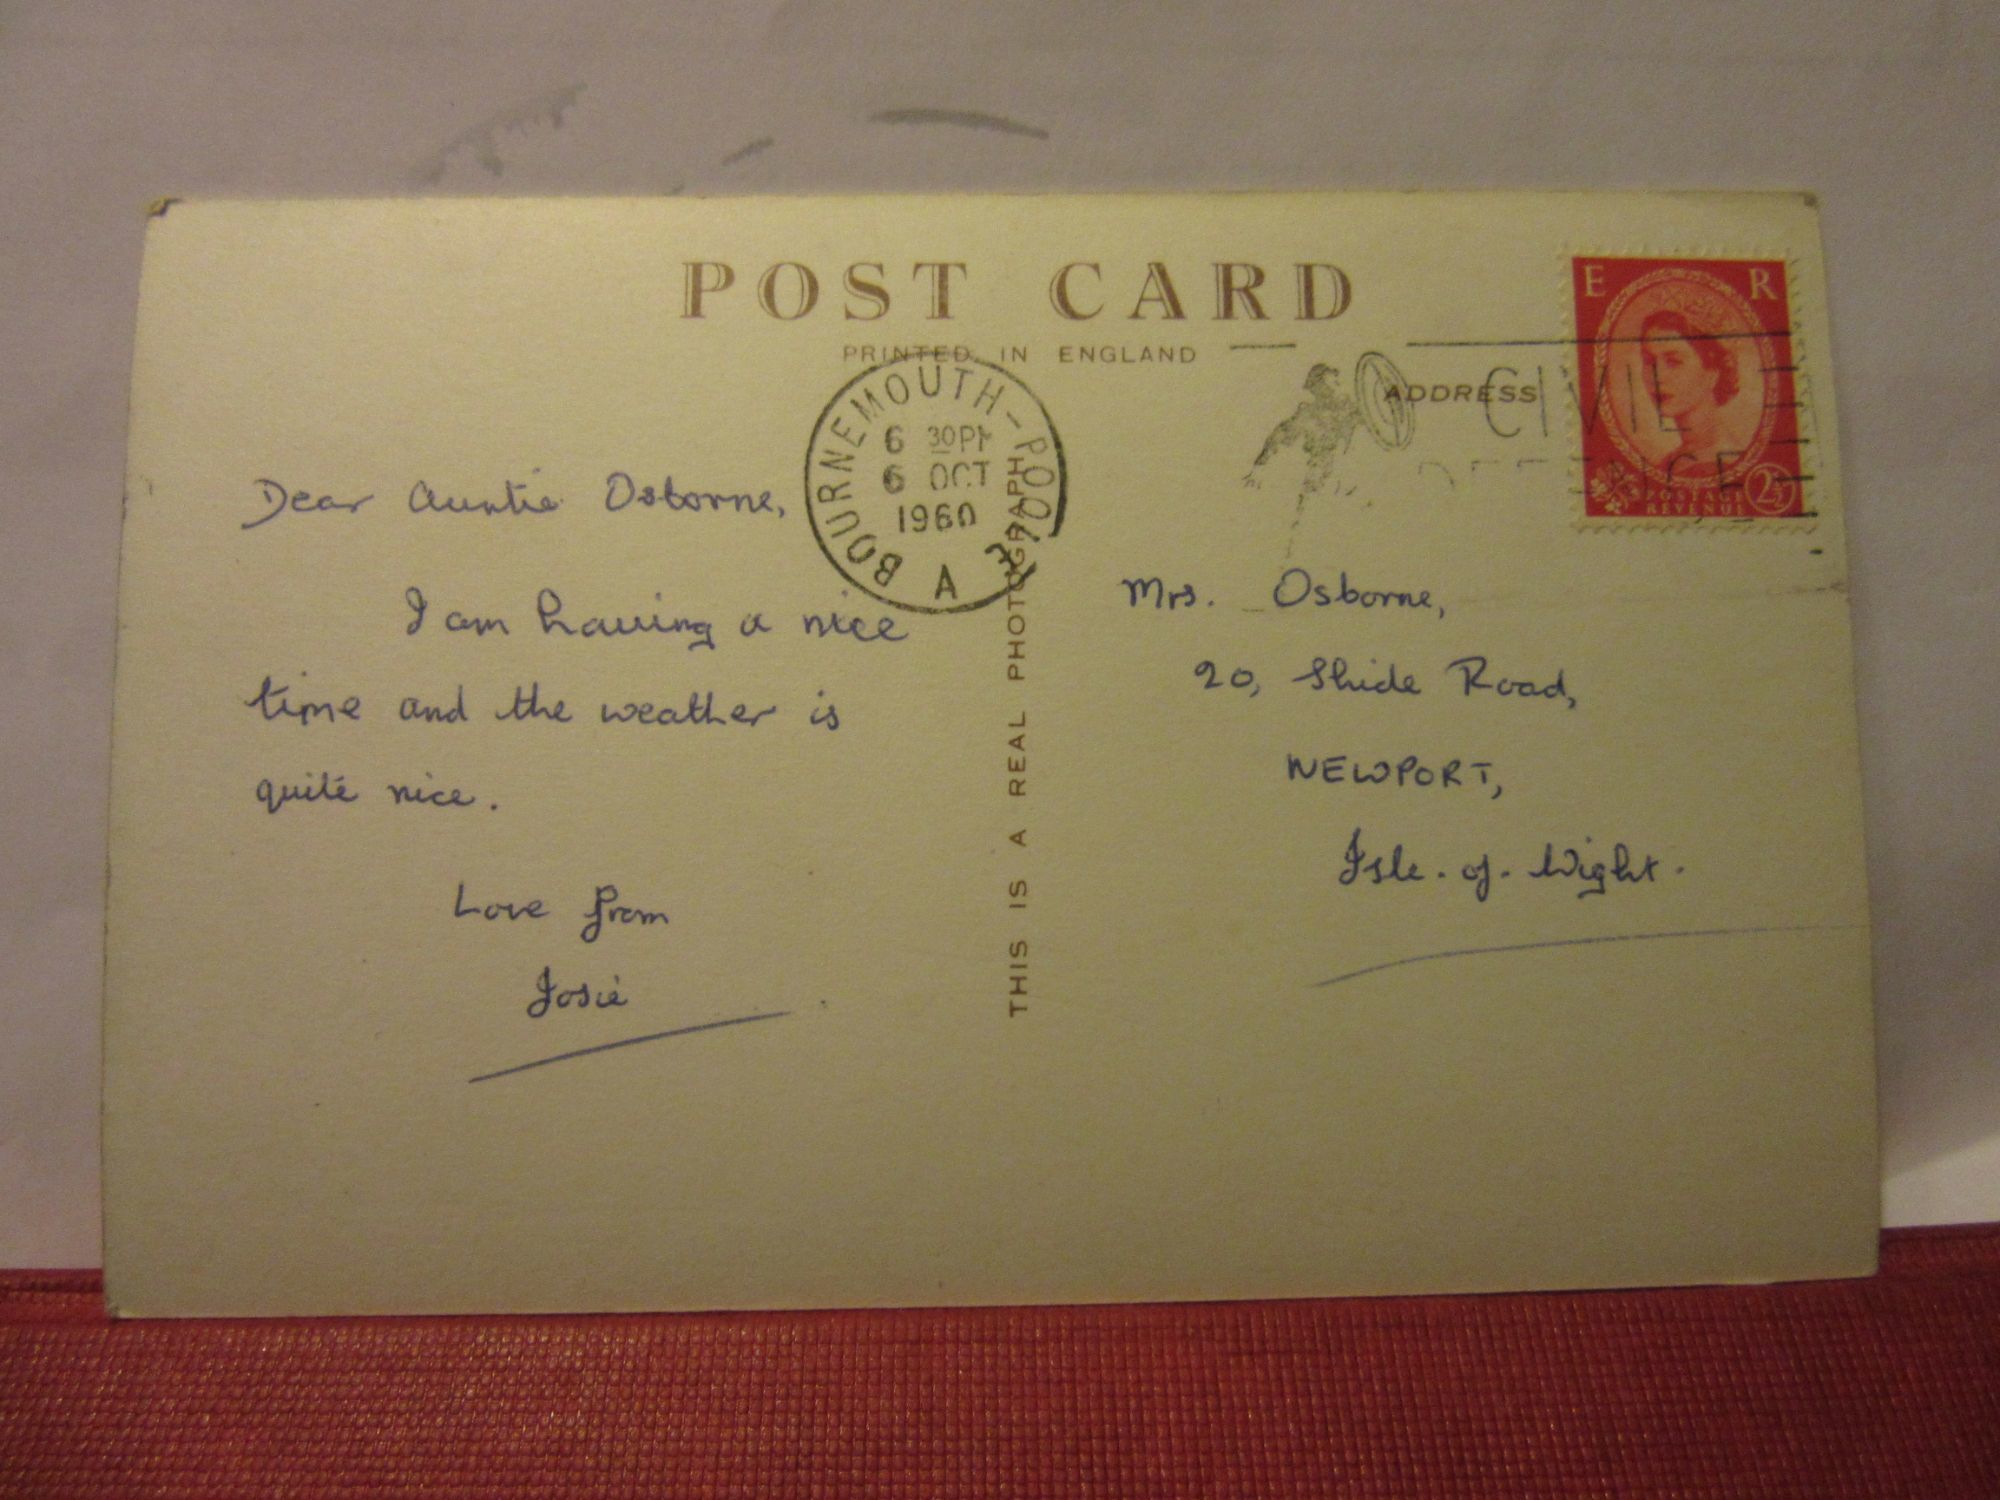 POST CARD
PRINTED IN ENGLAND
ADDRESS
E R
POSTAGE
REVENUE
2½
CIVIL
BOURNEMOUTH-POOLE
6 30PM
6 OCT
1960
A
THIS IS A REAL PHOTOGRAPH
Dear Auntie Osborne,
I am having a nice
time and the weather is
quite nice.
Love from
Josie
Mrs. Osborne,
20, Shide Road,
NEWPORT,
Isle. of. Wight.